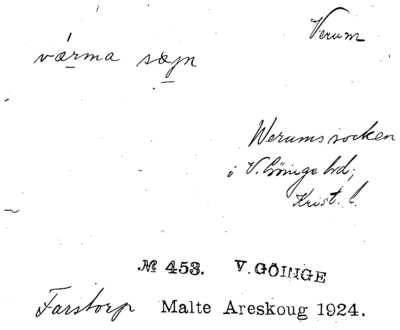 Verum
värma sæn
Werums socken
i V. Göinge hd;
Krist. l.
№ 453. V. GÖINGE
Farstorp Malte Areskoug 1924.